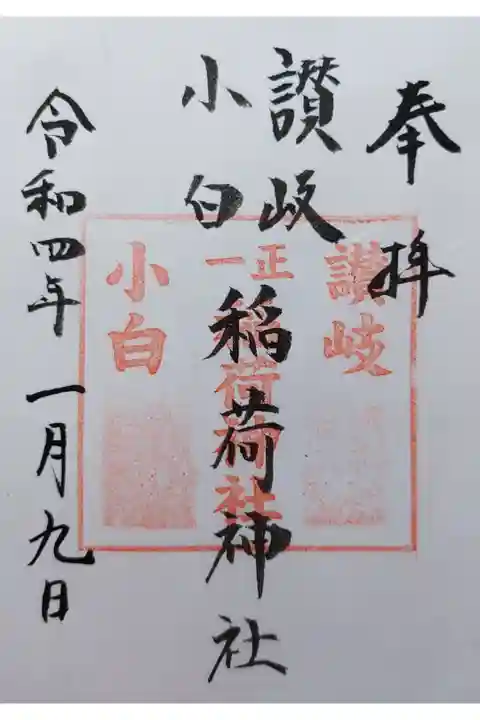 奉拝
讃岐
小白
稲荷神社
令和四年 一月九日
讃岐
正一
稲荷神社
小白